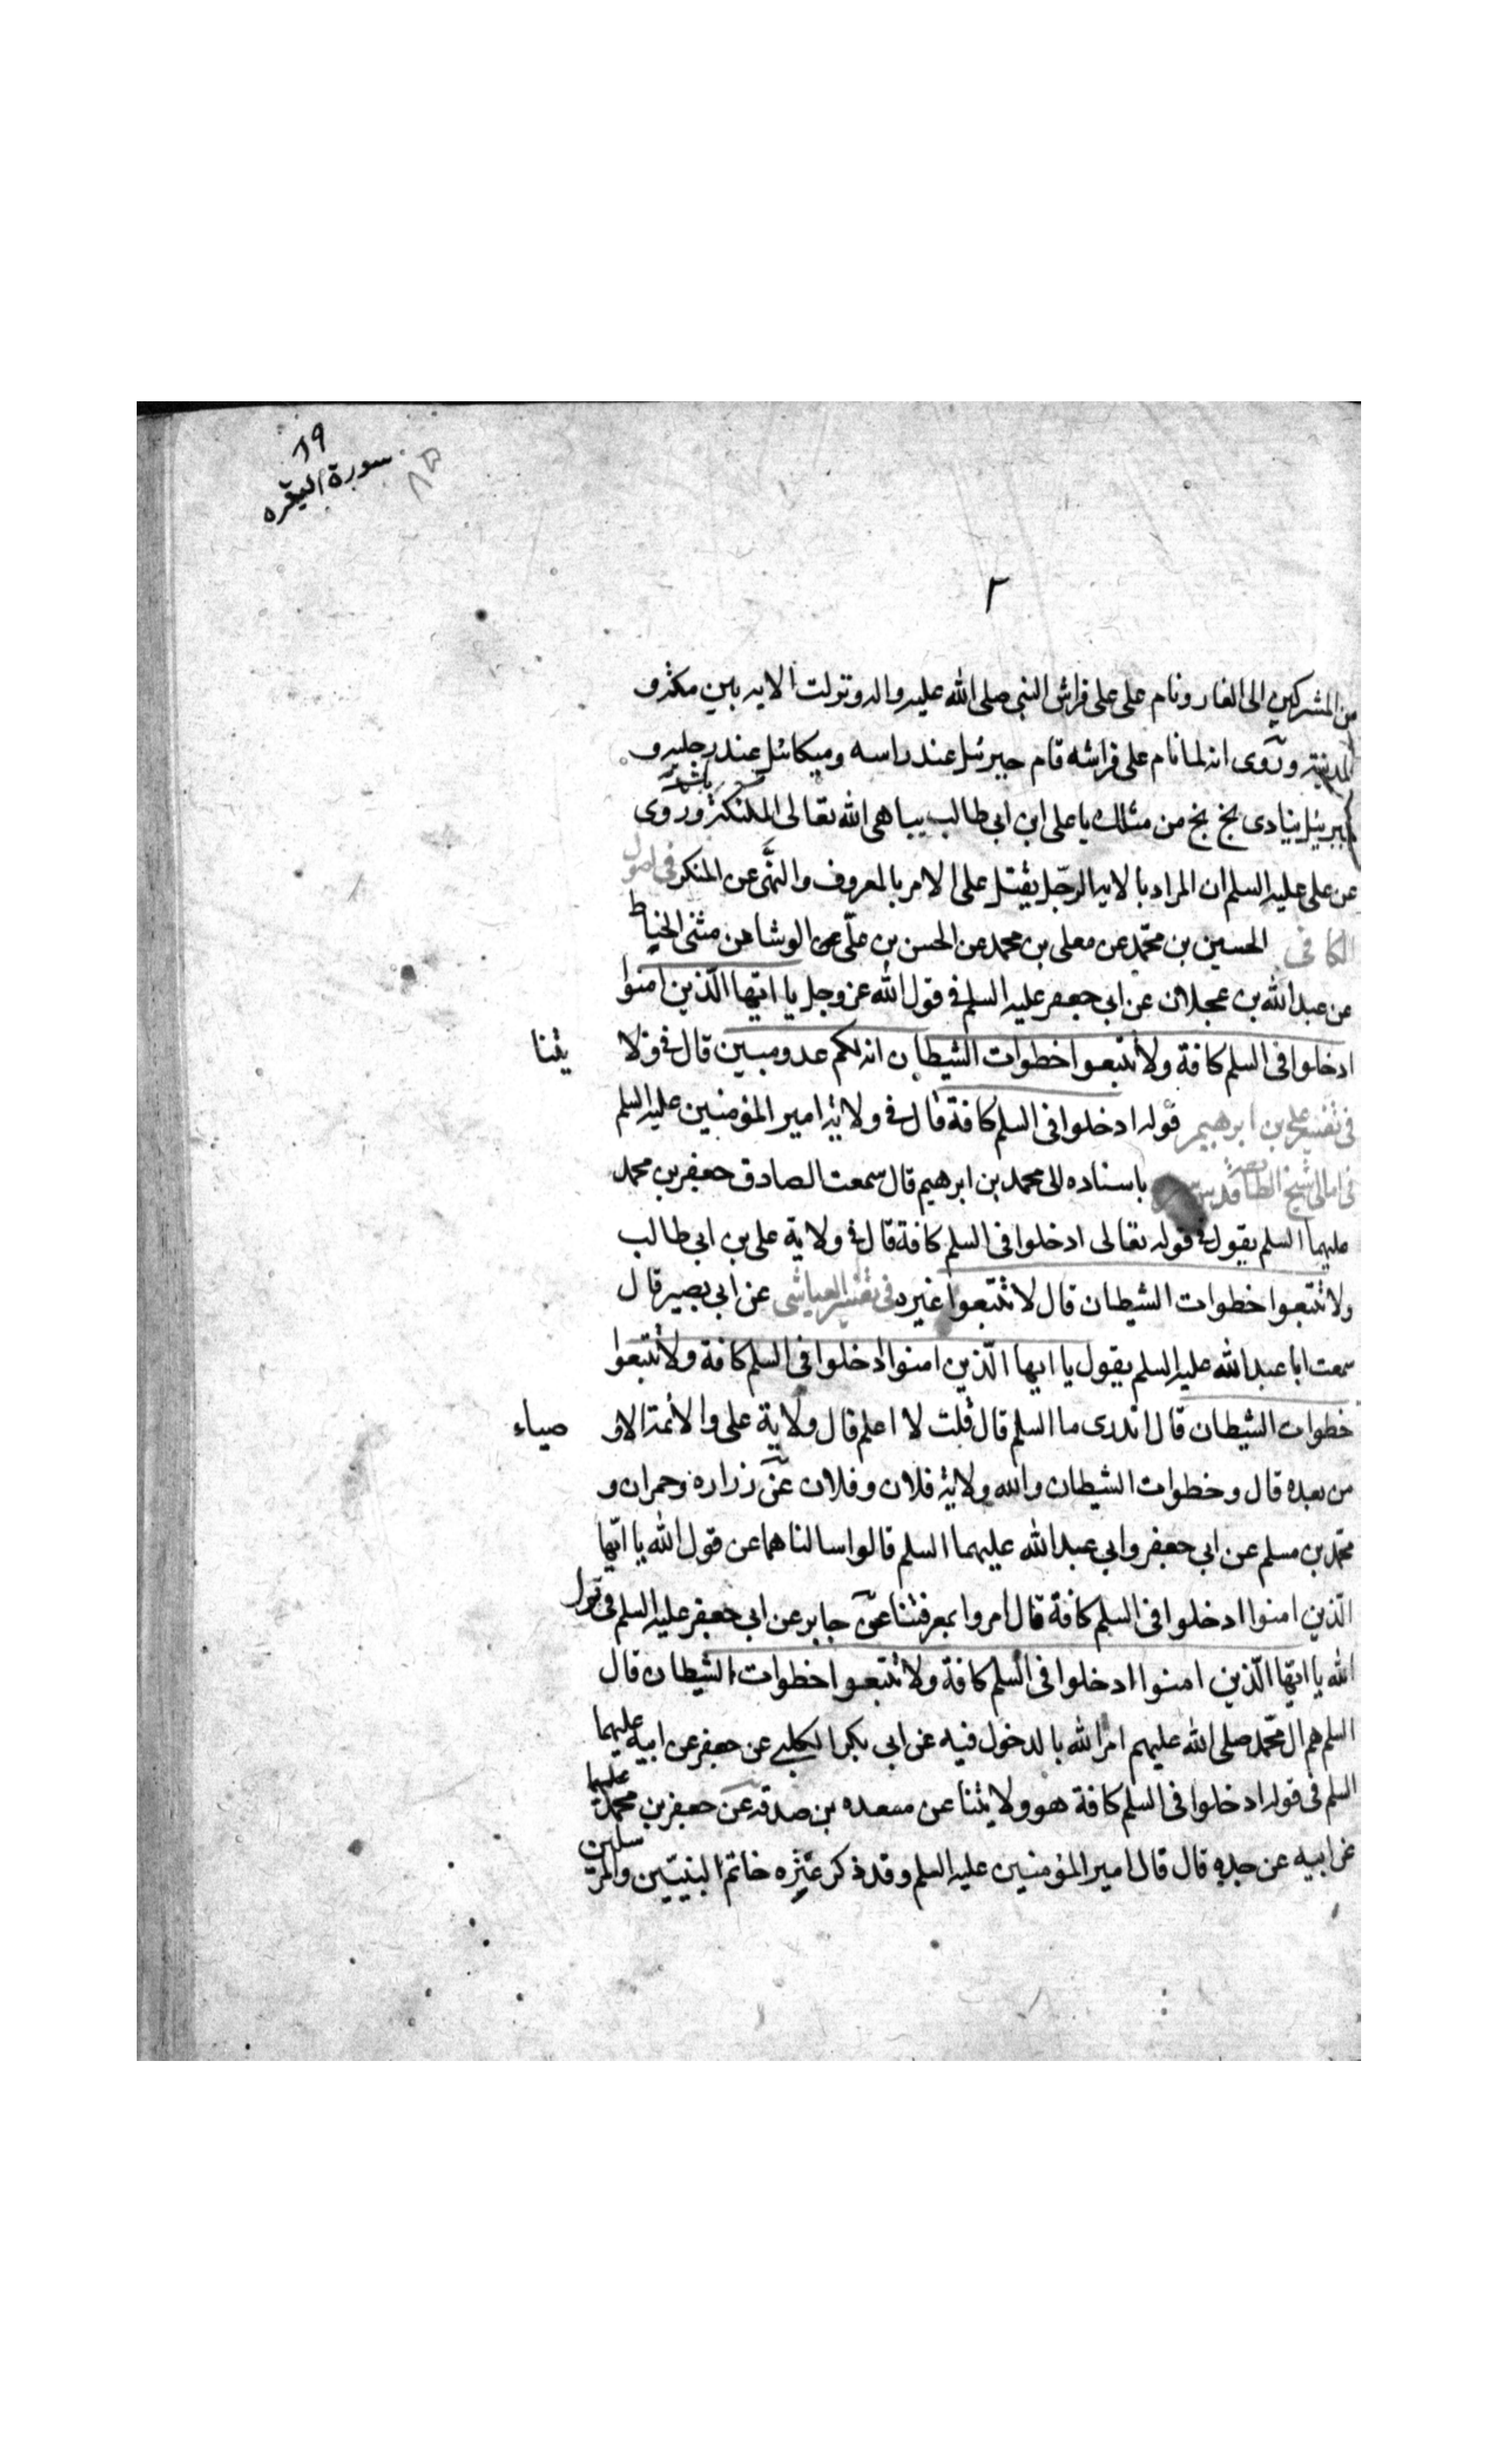 ٨٩
سورة البقره
٨٥
٢
من المشركين الى الغار ونام على على فراش النبى صلى الله عليه واله ونزلت الايه بين مكة و
المدينة وروى انه لما نام على فراشه قام جبرئيل عند راسه وميكائيل عند رجليه و
جبرئيل ينادى بخ بخ من مثلك يا على ابن ابى طالب يباهى الله تعالى بك الملئكة وروى
عن على عليه السلم ان المراد بالايه الرجل يقتل على الامر بالمعروف والنهى عن المنكر فى اصول
الكافى الحسين بن محمد عن معلى بن محمد عن الحسن بن على عن الوشا عن مثنى الخياط
عن عبد الله بن عجلان عن ابى جعفر عليه السلم فى قول الله عز وجل يا ايها الذين امنوا
ادخلوا فى السلم كافة ولا تتبعوا خطوات الشيطان انه لكم عدو مبين قال فى ولا يتنا
فى تفسير على بن ابرهيم قوله ادخلوا فى السلم كافة قال فى ولاية امير المؤمنين عليه السلم
فى امالى شيخ الطائفة قدس سره باسناده الى محمد بن ابرهيم قال سمعت الصادق جعفر بن محمد
عليهما السلم يقول فى قوله تعالى ادخلوا فى السلم كافة قال فى ولاية على بن ابى طالب
ولا تتبعوا خطوات الشيطان قال لا تتبعوا غيره فى تفسير العياشى عن ابى بصير قال
سمعت ابا عبد الله عليه السلم يقول يا ايها الذين امنوا ادخلوا فى السلم كافة ولا تتبعوا
خطوات الشيطان قال اتدرى ما السلم قال قلت لا اعلم قال ولاية على والائمة الاو صياء
من بعده قال وخطوات الشيطان والله ولاية فلان وفلان عن زراره وحمران و
محمد بن مسلم عن ابى جعفر وابى عبد الله عليهما السلم قالوا سالناهما عن قول الله يا ايها
الذين امنوا ادخلوا فى السلم كافة قال امروا بمعرفتنا عن جابر عن ابى جعفر عليه السلم فى قول
الله يا ايها الذين امنوا ادخلوا فى السلم كافة ولا تتبعوا خطوات الشيطان قال
السلم هم ال محمد صلى الله عليهم امر الله بالدخول فيه عن ابى بكر الكلبى عن جعفر عن ابيه عليهما
السلم فى قوله ادخلوا فى السلم كافة هو ولايتنا عن مسعده بن صدقه عن جعفر بن محمد
عن ابيه عن جده قال قال امير المؤمنين عليه السلم وقد ذكر عترة خاتم النبيين والمرسلين